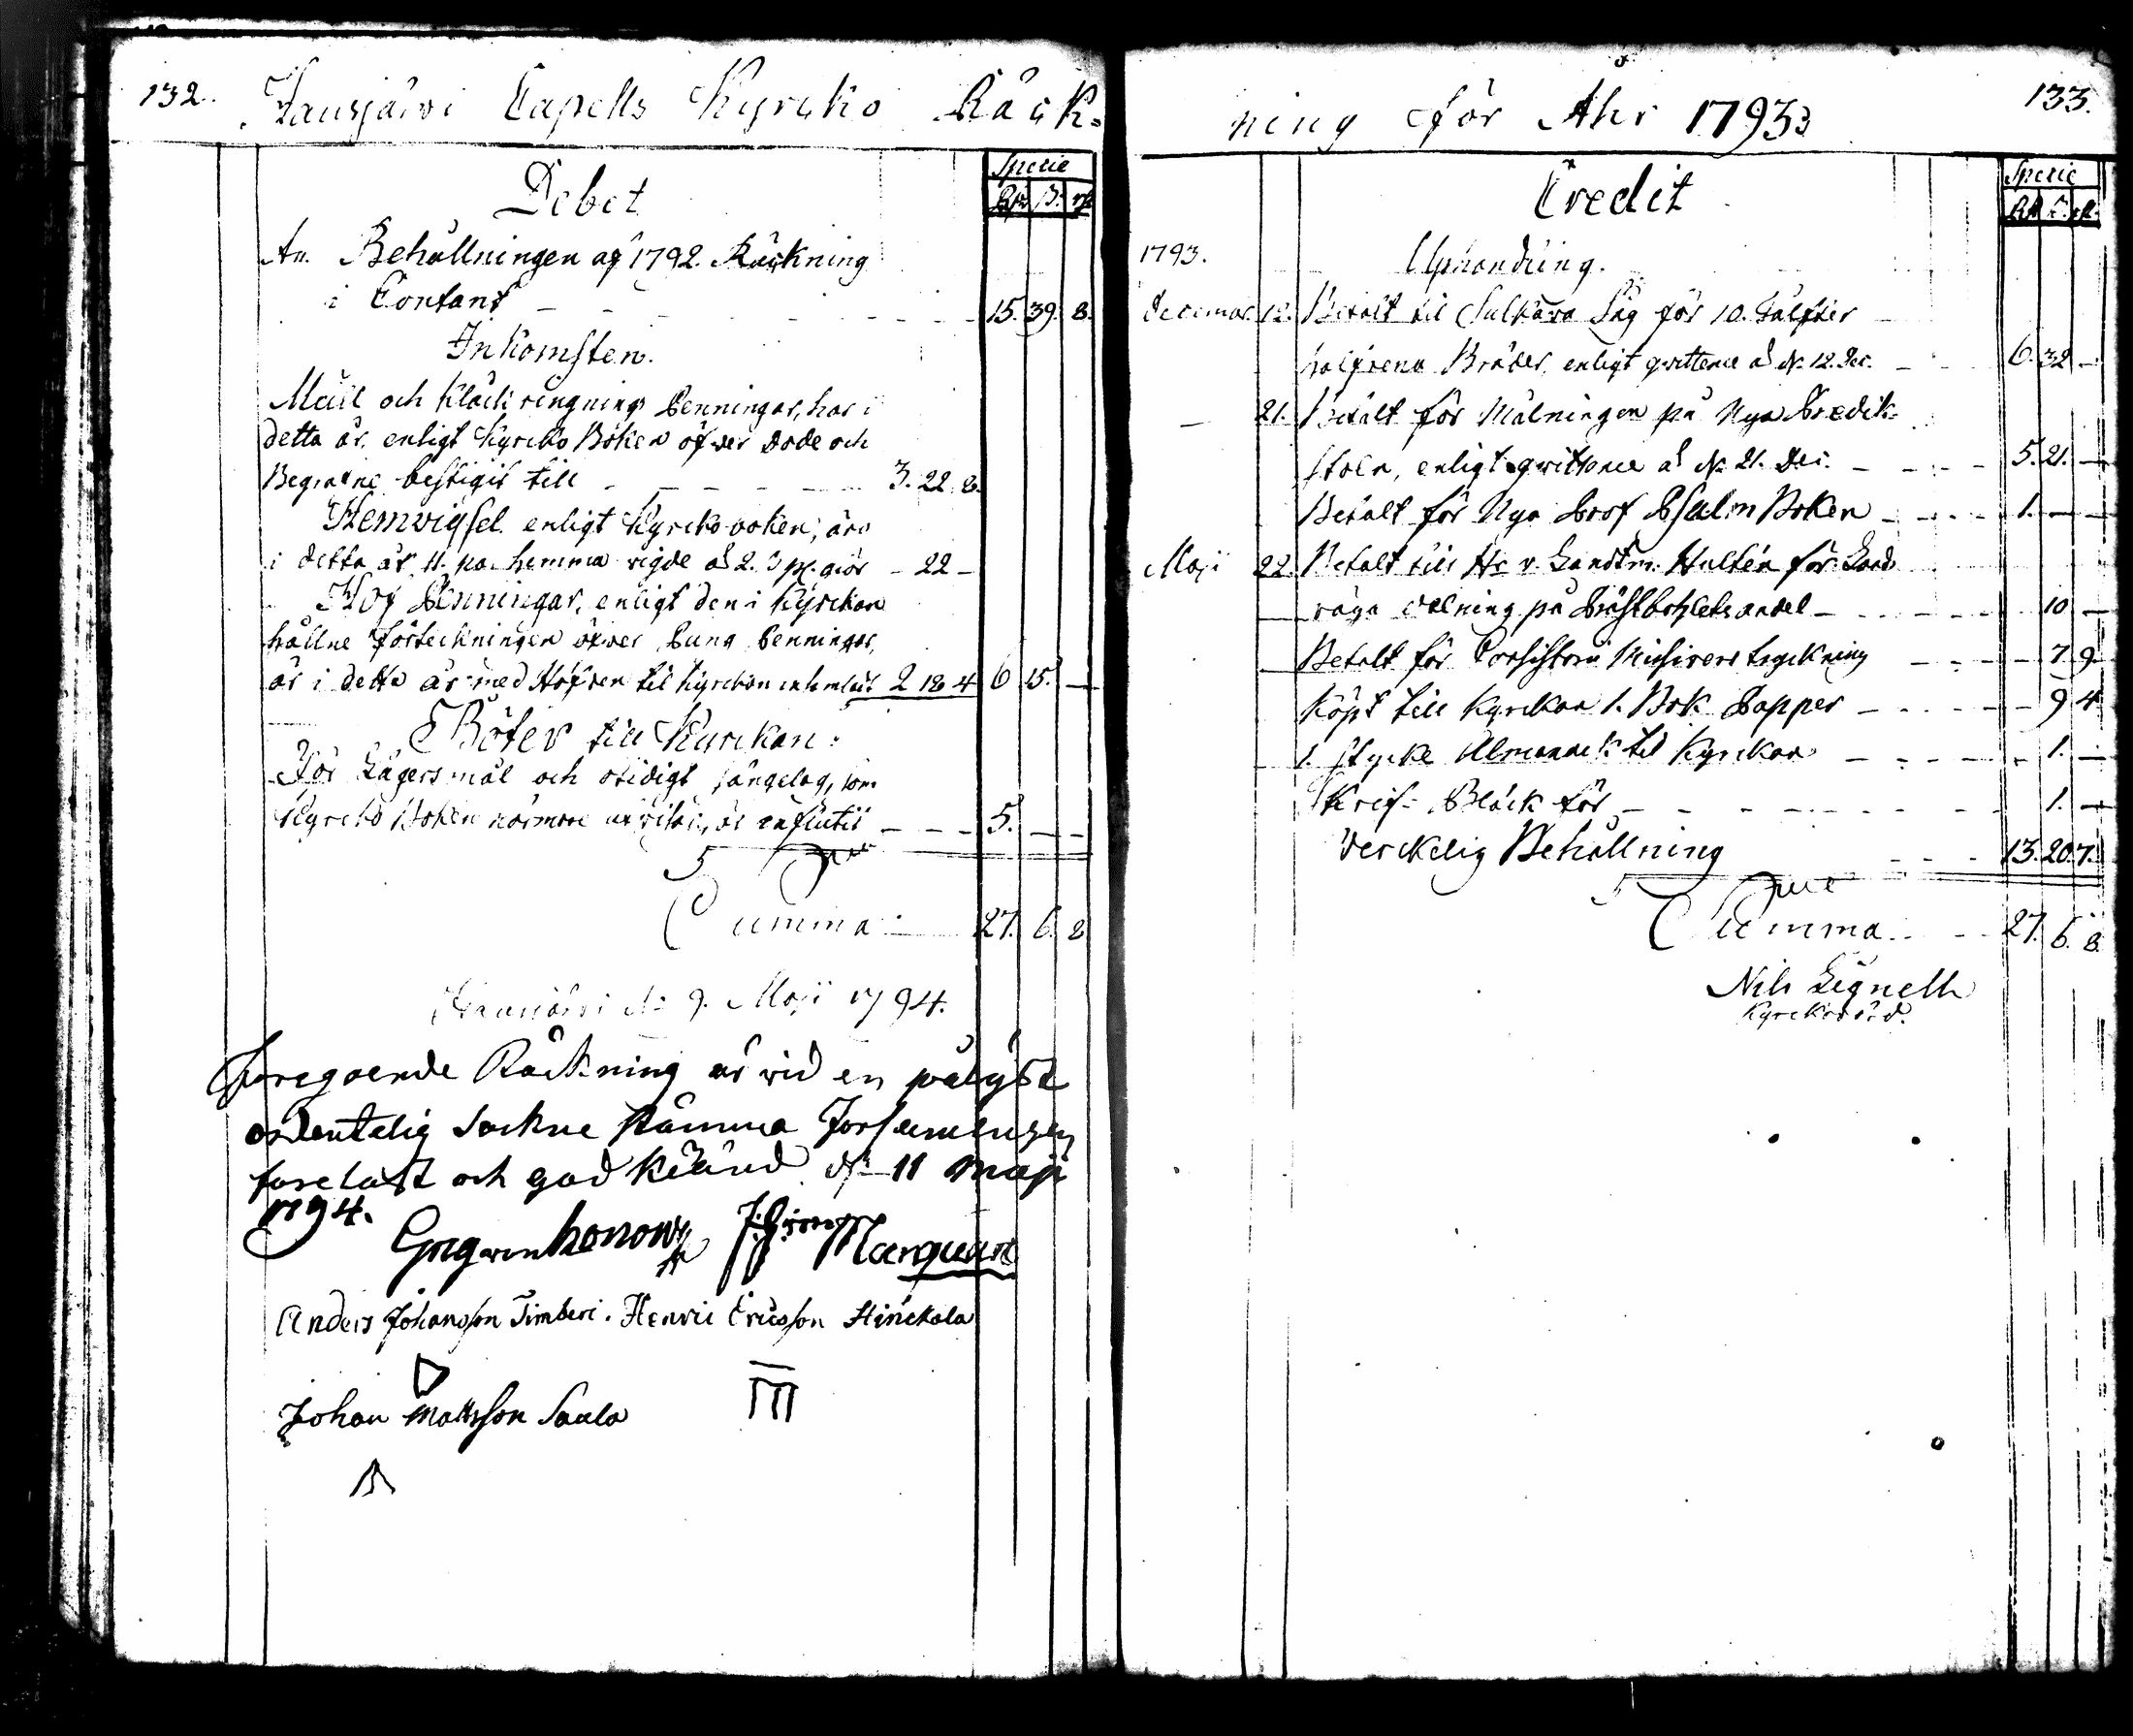 132. Hausjärvi Capells Kyrcko Räck-
Debet
Specie
Rdr ß. rst
An. Behållningen af 1792. Räckning
i Contant - - - 15. 39. 8.
Inkomsten.
Mull och Klåck ringnings Penningar, har i
detta år enligt Kyrcko Boken öfver Döde och
Begrafne bestigit till - - - 3. 22. 8.
Hemvigsel enligt Kyrcko boken, äro
i detta år 11. par hemma vigde à 2. ß pr. giör - 22 -
Håf Penningar, enligt den i Kyrckan
hållne förteckningen öfver Pung Penningar,
är i detta år med Håfven til Kyrckan inhemlat 2 18 4 6 15. -
Böter till Kyrckan:
För Lägersmål och otidigt sängelag, som
Kyrcko Boken närmare utvisar, är influtit - - - 5. - -
Summa - 27. 6. 8
Hausjärvi d: 9. Maji 1794.
Foregaende Räckning är vid en pålyst
ordentelig Sockne stämma Forsamlingen
forelast och god känd d: 11 Maji
1794.
Marquard
Anders Johansson Timberi. Henric Ericsson Hirickala
Johan Mattsson Saala
ning för Åhr 1793 133.
Credit
Specie
Rdr ß. rst
1793. Uphandling.
Decembr. 12. Betalt til Sulkava Såg för 10. Tålfter
halfrena Bräder, enligt qvittence af d. 12. Dec. - 6. 32 -
- 21. Betalt för Målningen på Nya Predik-
stoln, enligt qvittence af d. 21. Dec. - - - 5. 21. -
Betalt för Nya Prof Psalm Boken - - - 1. - -
Maji 22. Betalt till Hr v. Landtm. Hultén för Land
väga delning på Prästbohlets andel - - - 10 -
Betalt för Consistorii Missivers tryckning - - - 7 9.
Köpt till Kyrckan 1. Bok Papper - - - 9 4.
1. stycke Almanack til Kyrckan - - - 1. -
Skrif- Bläck för - - - 1. -
Verckelig Behållning - - - 13. 20. 7.
Summa - - 27. 6. 8.
Nils Lignell
Kyrckovärd.